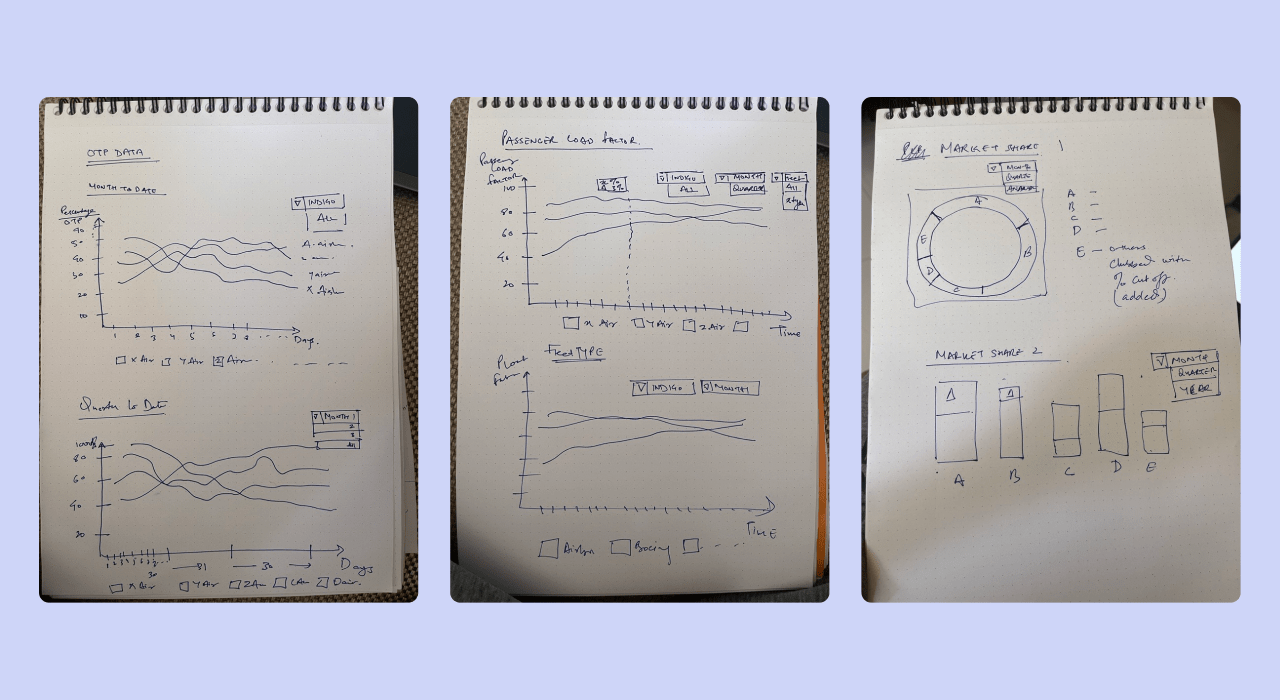 OTP DATA
MONTH TO DATE
Percentage
OTP
90
50
40
30
20
10
▽ INDIGO
ALL
A.air
Yair
1 2 3 4 5 6 7 8
Days.
X Air Y Air Z Air
Quarter to Date
100%
80
60
40
20
▽ MONTH 1
2
3
All
30
31
30
Days
X Air Y Air Z Air C Air D air.
PASSENGER LOAD FACTOR.
LOAD
FACTOR
100
80
60
40
20
▽ INDIGO
ALL
▽ MONTH
QUARTER
▽ Fleet
All
X Air Y Air Z Air
Time
FleetTYPE
▽ INDIGO
▽ MONTH
TIME
Airbus Boeing
MARKET SHARE 1
▽ MONTH
QUARTE
A
B
C
D
E
A –
B –
C –
D –
E – others
Clubbed with
% cut off.
(added)
MARKET SHARE 2
▽ MONTH
QUARTER
YEAR
Δ
Δ
A B C D E